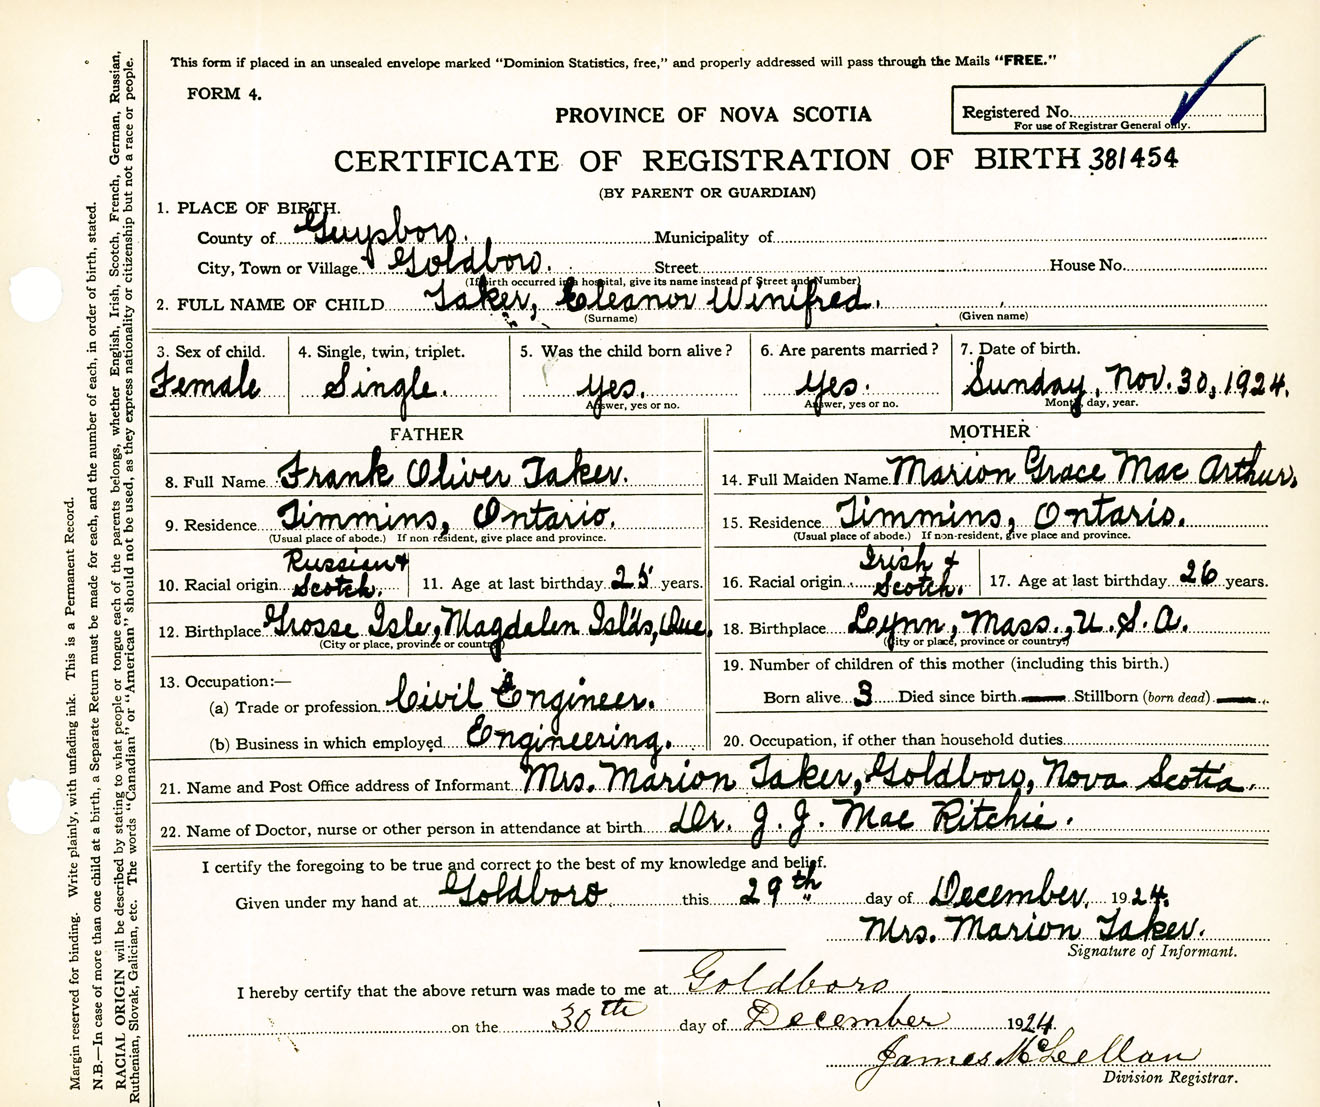 This form if placed in an unsealed envelope marked "Dominion Statistics, free," and properly addressed will pass through the Mails "FREE."
FORM 4.
PROVINCE OF NOVA SCOTIA
Registered No.
For use of Registrar General only.
CERTIFICATE OF REGISTRATION OF BIRTH 381454
(BY PARENT OR GUARDIAN)
1. PLACE OF BIRTH.
County of Guysboro. Municipality of
City, Town or Village Goldboro. Street House No.
(If birth occurred in a hospital, give its name instead of Street and Number)
2. FULL NAME OF CHILD Taker, Eleanor Winifred.
(Surname) (Given name)
3. Sex of child. 4. Single, twin, triplet. 5. Was the child born alive? 6. Are parents married? 7. Date of birth.
Female Single. Yes. Yes. Sunday, Nov. 30, 1924.
Answer, yes or no. Answer, yes or no. Month, day, year.
FATHER MOTHER
8. Full Name Frank Oliver Taker. 14. Full Maiden Name Marion Grace Mac Arthur.
9. Residence Timmins, Ontario. 15. Residence Timmins, Ontario.
(Usual place of abode.) If non resident, give place and province. (Usual place of abode.) If non-resident, give place and province.
10. Racial origin Russian & Scotch. 11. Age at last birthday 25 years. 16. Racial origin Irish & Scotch. 17. Age at last birthday 26 years.
12. Birthplace Grosse Isle, Magdalen Isl'ds, Que. 18. Birthplace Lynn, Mass., U.S.A.
(City or place, province or country) (City or place, province or country)
13. Occupation:— 19. Number of children of this mother (including this birth.)
(a) Trade or profession Civil Engineer. Born alive 3 Died since birth — Stillborn (born dead) —
(b) Business in which employed Engineering. 20. Occupation, if other than household duties
21. Name and Post Office address of Informant Mrs. Marion Taker, Goldboro, Nova Scotia.
22. Name of Doctor, nurse or other person in attendance at birth Dr. J. J. Mac Ritchie.
I certify the foregoing to be true and correct to the best of my knowledge and belief.
Given under my hand at Goldboro this 29th day of December, 1924.
Mrs. Marion Taker.
Signature of Informant.
I hereby certify that the above return was made to me at Goldboro
on the 30th day of December 1924.
James McLellan
Division Registrar.
Margin reserved for binding. Write plainly, with unfading ink. This is a Permanent Record.
N.B.—In case of more than one child at a birth, a Separate Return must be made for each, and the number of each, in order of birth, stated.
RACIAL ORIGIN will be described by stating to what people or tongue each of the parents belongs, whether English, Irish, Scotch, French, German, Russian,
Ruthenian, Slovak, Galician, etc. The words "Canadian" or "American" should not be used, as they express nationality or citizenship but not a race or people.